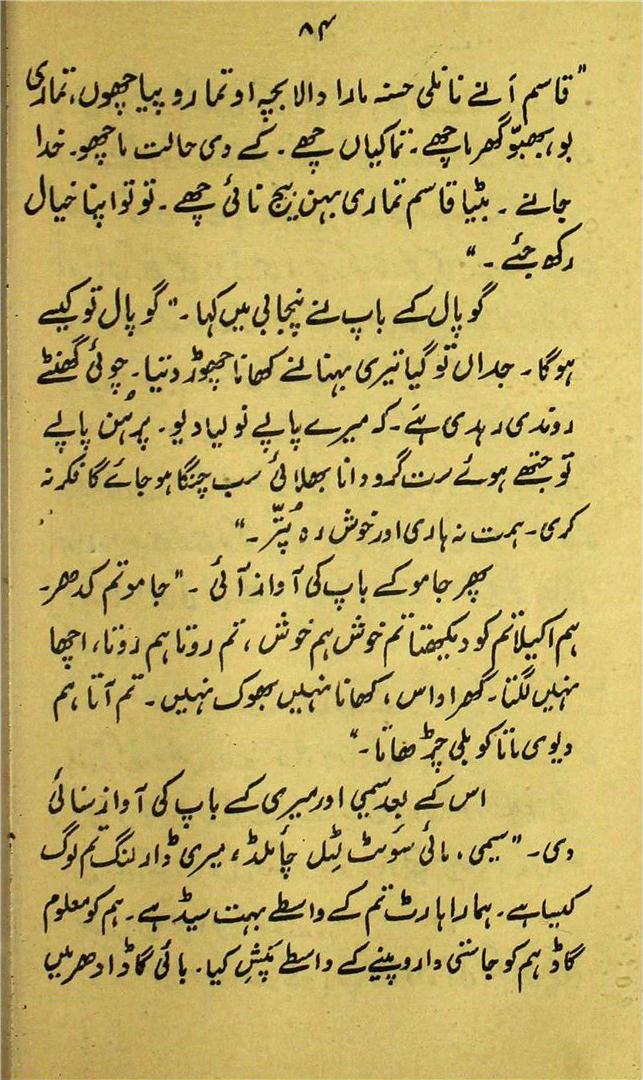 ۸۴
"قاسم آنے نانلی حسنہ مارا والا بچہ او تما رو پیا چھوں، تماری
بو، بھبّو گھر ما چھے۔ تما کیاں چھے۔ کے وی حالت ما چھو۔ خدا
جانے ۔ بٹیا قاسم تماری بہن زیج نائی چھے۔ تو تو اپنا خیال
رکھ جئے ۔"
گوپال کے باپ نے پنجابی میں کہا ۔" گوپال تو کیسے
ہوگا۔ جداں تو گیا تیری بہنا نے کھانا چھوڑ دتیا۔ چوئی گھنٹے
روندی رہدی ہے۔ کہ میرے پاپے نو لیا دیو۔ پر ہُن پاپے
تو جتھے ہوئے ست گرو دانا بھلائی سب چنگا ہو جائے گا فکر نہ
کری۔ ہمت نہ ہاری اور خوش رہ پُتّر ۔"
پھر جامو کے باپ کی آواز آئی ۔"جامو تم کدھر۔
ہم اکیلا تم کو دیکھتا تم خوش ہم خوش ، تم روتا ہم روتا، اچھا
نہیں لگتا۔ گھر اداس ، کھانا نہیں بھوک نہیں۔ تم آتا ہم
دیوی ماتا کو بلی چڑھاتا۔"
اس کے بعد سمی اور میری کے باپ کی آواز سنائی
دی۔ "سیمی، مائی سوئٹ لِٹل چائلڈ، میری ڈارلنگ تم لوگ
کیسا ہے۔ ہمارا ہارٹ تم کے واسطے بہت سیڈ ہے۔ ہم کو معلوم
گاڈ ہم کو جاستی دارو پینے کے واسطے پَنِش کیا۔ بائی گاڈ ادھر میں